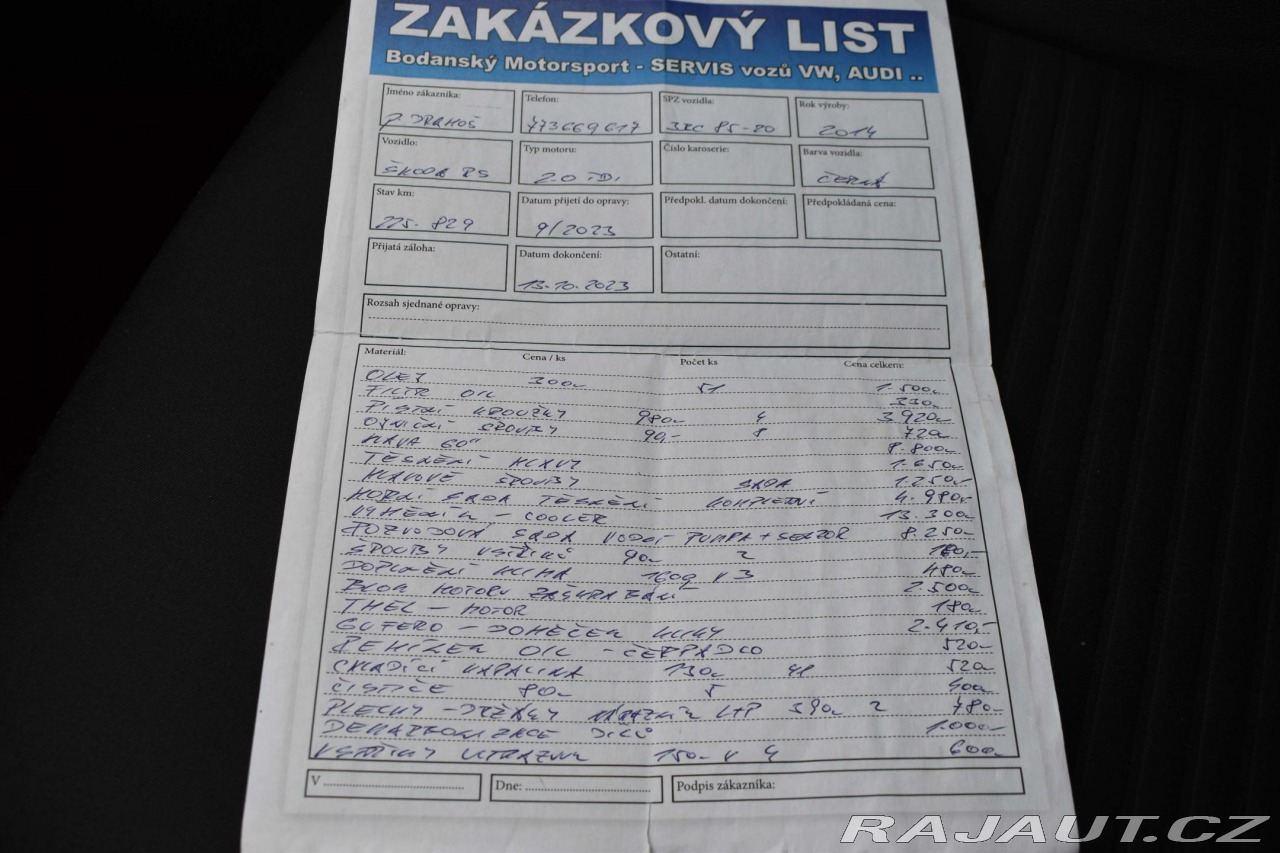 ZAKÁZKOVÝ LIST
Bodanský Motorsport - SERVIS vozů VW, AUDI ..
Jméno zákazníka: Telefon: SPZ vozidla: Rok výroby:
P. DRAHOŠ 773669617 85-20 2014
Vozidlo: Typ motoru: Číslo karoserie: Barva vozidla:
ŠKODA RS 2.0 TDI ČERNÁ
Stav km: Datum přijetí do opravy: Předpokl. datum dokončení: Předpokládaná cena:
225.829 9/2023
Přijatá záloha: Datum dokončení: Ostatní:
13.10.2023
Rozsah sjednané opravy:
Materiál: Cena / ks Počet ks Cena celkem:
OLEJ 300,- 5l 1.500,-
FILTR OIL 330,-
PÍSTNÍ KROUŽKY 980,- 4 3.920,-
OJNIČNÍ ŠROUBY 90,- 8 720,-
HLAVA 8.800,-
TĚSNĚNÍ HLAVY 1.650,-
HLAVOVÉ ŠROUBY SADA 1.250,-
HORNÍ SADA TĚSNĚNÍ KOMPLETNÍ 4.980,-
VÝMĚNÍK - COOLER 13.300,-
ROZVODOVÁ SADA VODNÍ PUMPA + SENZOR 8.250,-
ŠROUBY VSTŘIKŮ 90,- 2 180,-
DOPLNĚNÍ KLIMA 160g 480,-
BLOK MOTORU 2.500,-
TMEL - MOTOR 180,-
GUFERO - DOMEČEK KLIKY 2.410,-
ŘEMÍNEK OIL - ČERPADLO 520,-
CHLADÍCÍ KAPALINA 130,- 4l 520,-
ČISTIČE 80,- 5 400,-
PLECHY - DRŽÁKY NÁRAZNÍK L+P 390,- 2 780,-
DEKARBONIZACE DÍLŮ 1.000,-
VSTŘIKY ULTRAZVUK 150,- 4 600,-
V Dne: Podpis zákazníka:
RAJAUT.CZ